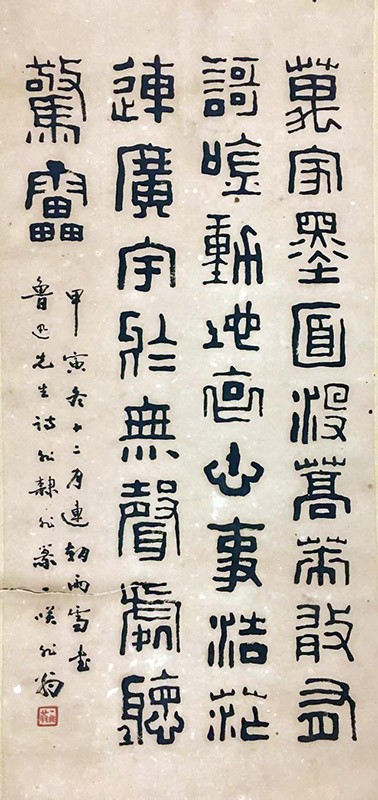 萬家墨面沒蒿萊敢有
謌唫動地哀心事浩茫
連廣宇於無聲處聽
驚靁
甲寅冬十二月連朝雨雪書
魯迅先生詩非隸非篆一咲非翁